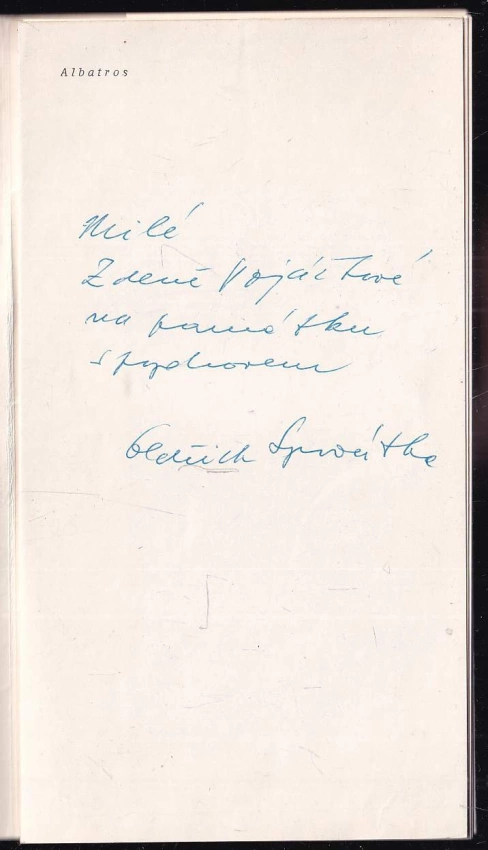 Albatros
Milé
Zdeně Vojáčkové
na památku
s pozdravem
Oldřich Sirovátka